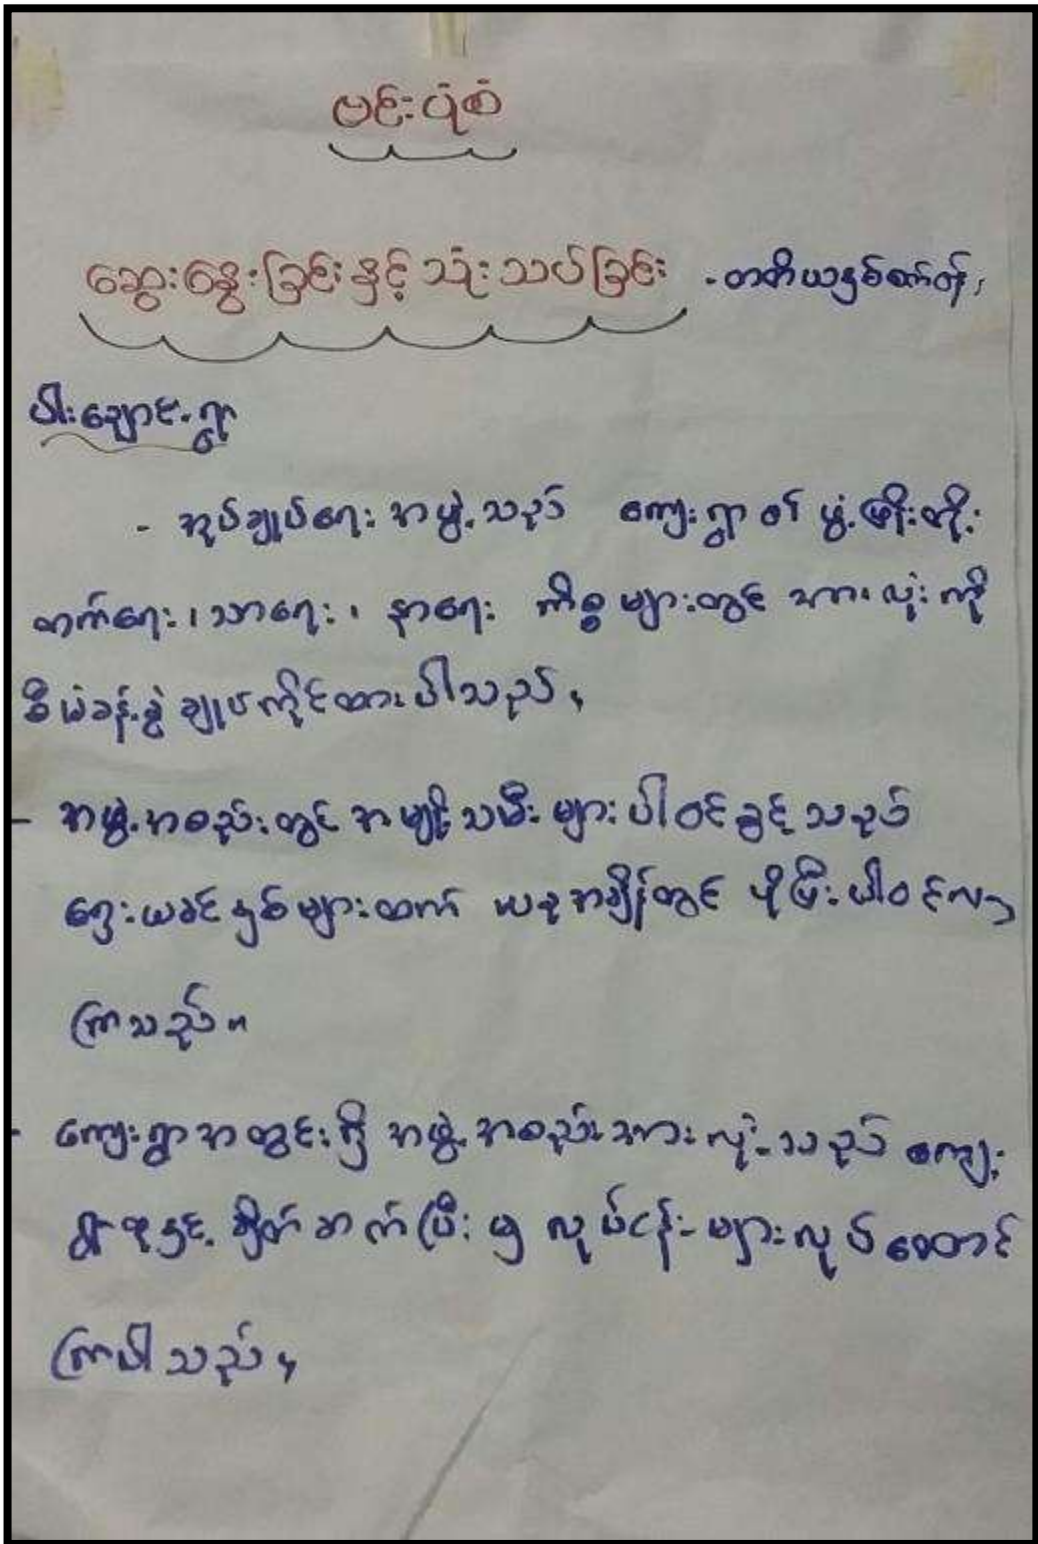 ဗင်းပုံစံ
ဆွေးနွေးခြင်းနှင့်သုံးသပ်ခြင်း - တတိယနှစ်ပတ်
ပါးချောင်းရွာ
- အုပ်ချုပ်ရေးအဖွဲ့သည် ကျေးရွာဖွံ့ဖြိုးတိုး
တက်ရေး၊ သာရေး၊ နာရေး ကိစ္စများတွင် အားလုံးကို
စီမံခန့်ခွဲ ချုပ်ကိုင်ထားပါသည်။
- အဖွဲ့အစည်းတွင် အမျိုးသမီးများ ပါဝင်ခွင့်သည်
ရှေးယခင်နှစ်များထက် ယခုအချိန်တွင် ပိုပြီးပါဝင်လာ
ကြသည်။
- ကျေးရွာအတွင်းရှိ အဖွဲ့အစည်းအားလုံးသည် ကျေး
ရွာလူထုနှင့် ချိတ်ဆက်ပြီးမှ လုပ်ငန်းများလုပ်ဆောင်
ကြပါသည်။